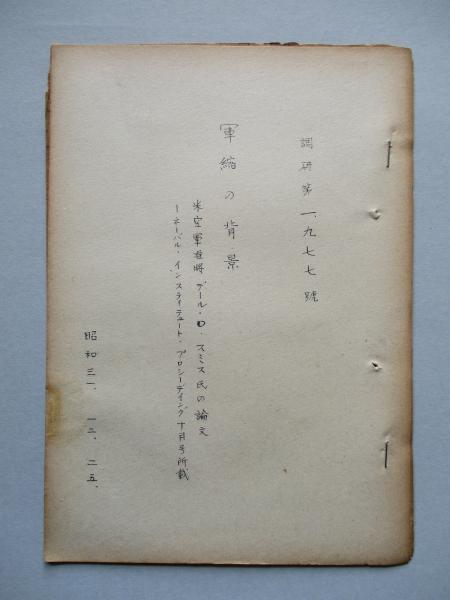 調研第一九七七號
軍縮の背景
米空軍准將デール・O・スミス氏の論文
ーネーバル・インスティテュート・プロシーデイング十月号所載
昭和三一、一二、二五、